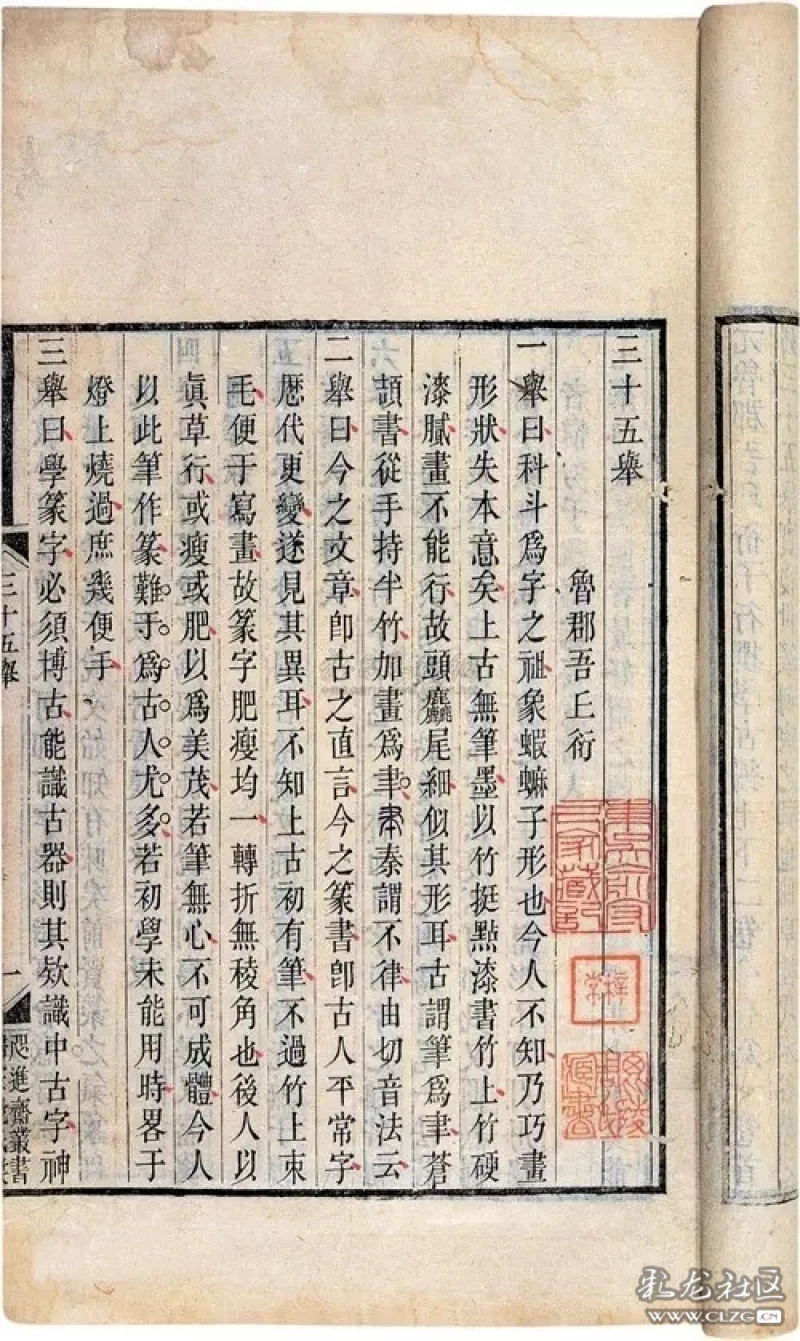 三十五舉
魯郡吾丘衍
一舉曰科斗爲字之祖象蝦蟆子形也今人不知乃巧畫
形狀失本意矣上古無筆墨以竹挺點漆書竹上竹硬
漆膩畫不能行故頭麤尾細似其形耳古謂筆爲聿蒼
頡書從手持半竹加畫爲聿秦謂不律由切音法云
二舉曰今之文章卽古之直言今之篆書卽古人平常字
歷代更變遂見其異耳不知上古初有筆不過竹上束
毛便于寫畫故篆字肥瘦均一轉折無稜角也後人以
眞草行或瘦或肥以爲美茂若筆無心不可成體今人
以此筆作篆難于爲古人尤多若初學未能用時畧于
燈上燒過庶幾便手
三舉曰學篆字必須博古能識古器則其欵識中古字神
三十五舉
一
咫進齋叢書
家藏
彩龙社区
WWW.CLZG.CN